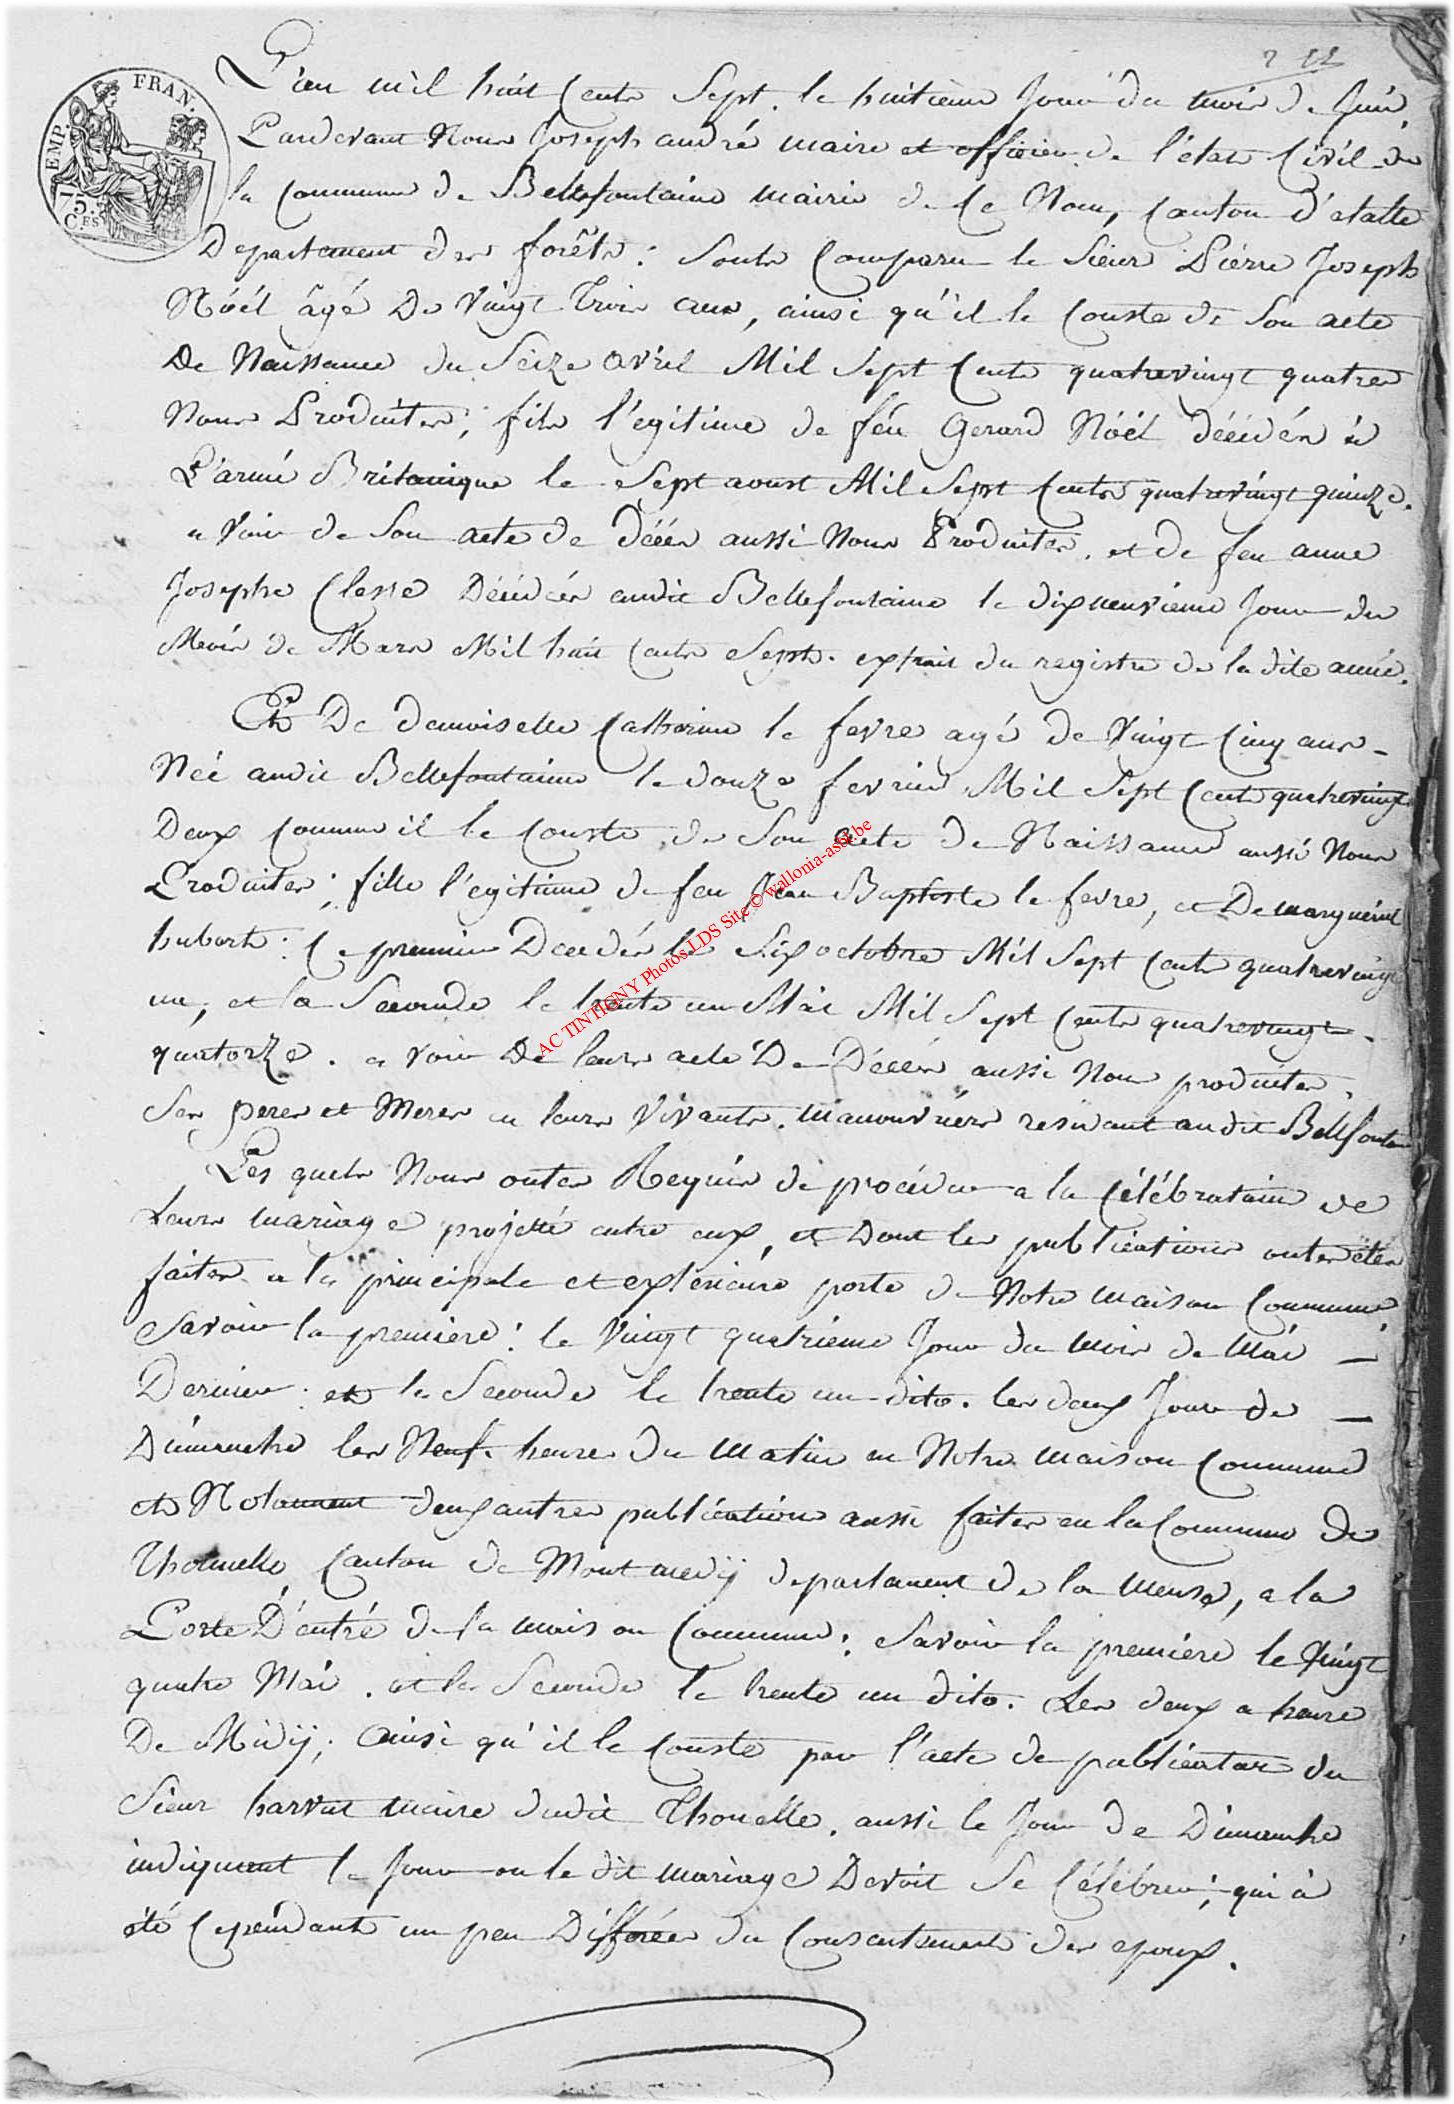 L'an mil huit Cents Sept. le huitieme Jour du mois de Juin,
Pardevant Nous Joseph andré maire et officier de l'état Civil de
la Commune de Bellefontaine mairie de Ce Nom, Canton d'etalle
Departement des forêts : Sonts Comparu le Sieur Piérre Joseph
Nóél âgé De Vingt Trois ans, ainsi qu'il le Conste de Son acte
De Naissance du Seize avril Mil Sept Cents quatrevingt quatres
Nous Produites; fils l'égitime de feu Gerard Nóél décédés à
L'armé Britanique le Sept aoust Mil Sept Cents quatrevingt quinze.
a Voir de Son acte de décés aussi Nous Produites. et de feu anne
Josephe Clesse Décédés audit Bellefontaine le dixneuvieme Jour du
Mois de Mars Mil huit Cents Sept. extrait du registre de la dite année.
Et De demoiselle Catherine le fevre agé de Vingt Cinq ans -
Née audit Bellefontaine le douze fevrier Mil Sept Cent quatrevingt
Deux Comme il le Conste de Son acte de Naissance aussi Nous
Produites; fille l'egitime de feu Jean Baptiste le fevre, et De marguerite
huberts : Ce premier Decedés le Six octobre Mil Sept Cents quatrevingt
un, et la Seconde le trente un Mai Mil Sept Cents quatrevingt
quatorze. a voir De leurs acte De Décés aussi Nous produites.
Ses peres et Meres en leurs Vivants. manouvriérs residant audit Bellfontaine
Les quels Nous ontes Requis de procéder a la Célébration de
Leurs mariage projetté entre eux, et Dont les publications ontes étés
faites a la principale et extérieure porte de Notre maison Commune,
Savoir la premiere : le Vingt quatriéme Jour du mois de Mai —
Dernier et la Seconde le trente un dito. les deux Jour de —
Dimanche les Neuf heures du matin en Notre maison Commune
et Notament deux autres publications aussi faites en la Commune de
Thonnelle Canton de Montmedij departement de la Meuse, a la
Porte D'éntré de la maison Commune : Savoir la premiére le Vingt
quatre Mai. et la Seconde le trente un dito. Les deux a heure
De Midij; ainsi qu'il le Conste par l'acte de publication du
Sieur maire dudit Thonelle. aussi le Jour de Dimanche
indiquant le Jour ou le dit mariage Devoit Se Célébrer; qui à
été Cependant un peu Differés du Consentement des epoux.
EMP. FRAN.
75.
C.ES
AC TINTIGNY Photos LDS Site © wallonia-asbl.be